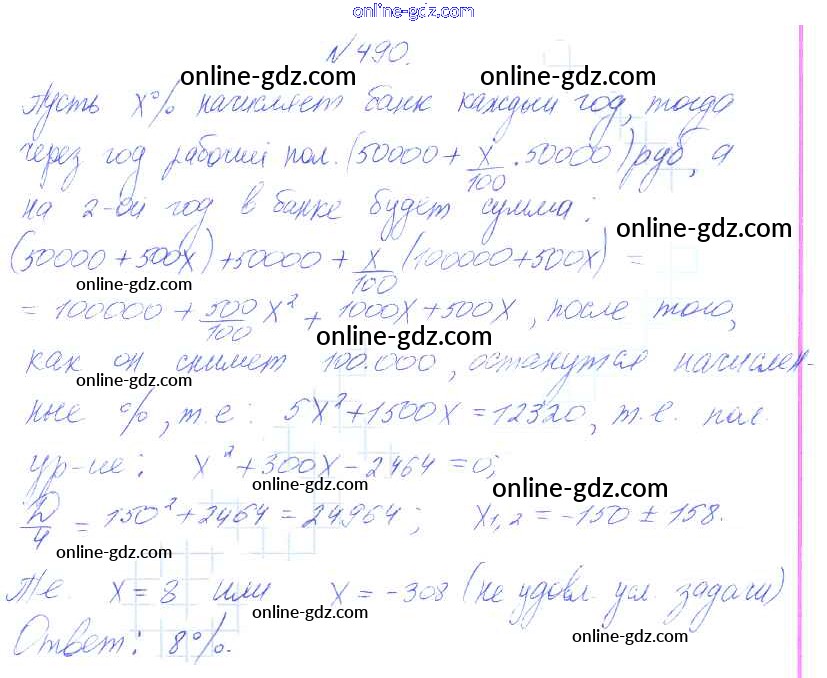 online-gdz.com
№490.
online-gdz.com online-gdz.com
Пусть x% начисляет банк каждый год, тогда
через год рабочий пол. (50000 + x/100 · 50000) руб, а
на 2-ой год в банке будет сумма:
online-gdz.com
(50000 + 500x) + 50000 + x/100 (100000 + 500x) =
online-gdz.com
= 100000 + 500/100 x² + 1000x + 500x, после того,
online-gdz.com
как он снимет 100.000, останутся начислен-
online-gdz.com
ные %, т.е: 5x² + 1500x = 12320, т.е. пол.
ур-ие: x² + 300x - 2464 = 0;
online-gdz.com online-gdz.com
D/4 = 150² + 2464 = 24964; x1,2 = -150 ± 158.
online-gdz.com
Т.е. x = 8 или x = -308 (не удовл. усл. задачи)
online-gdz.com
Ответ: 8%.
online-gdz.com
online-gdz.com